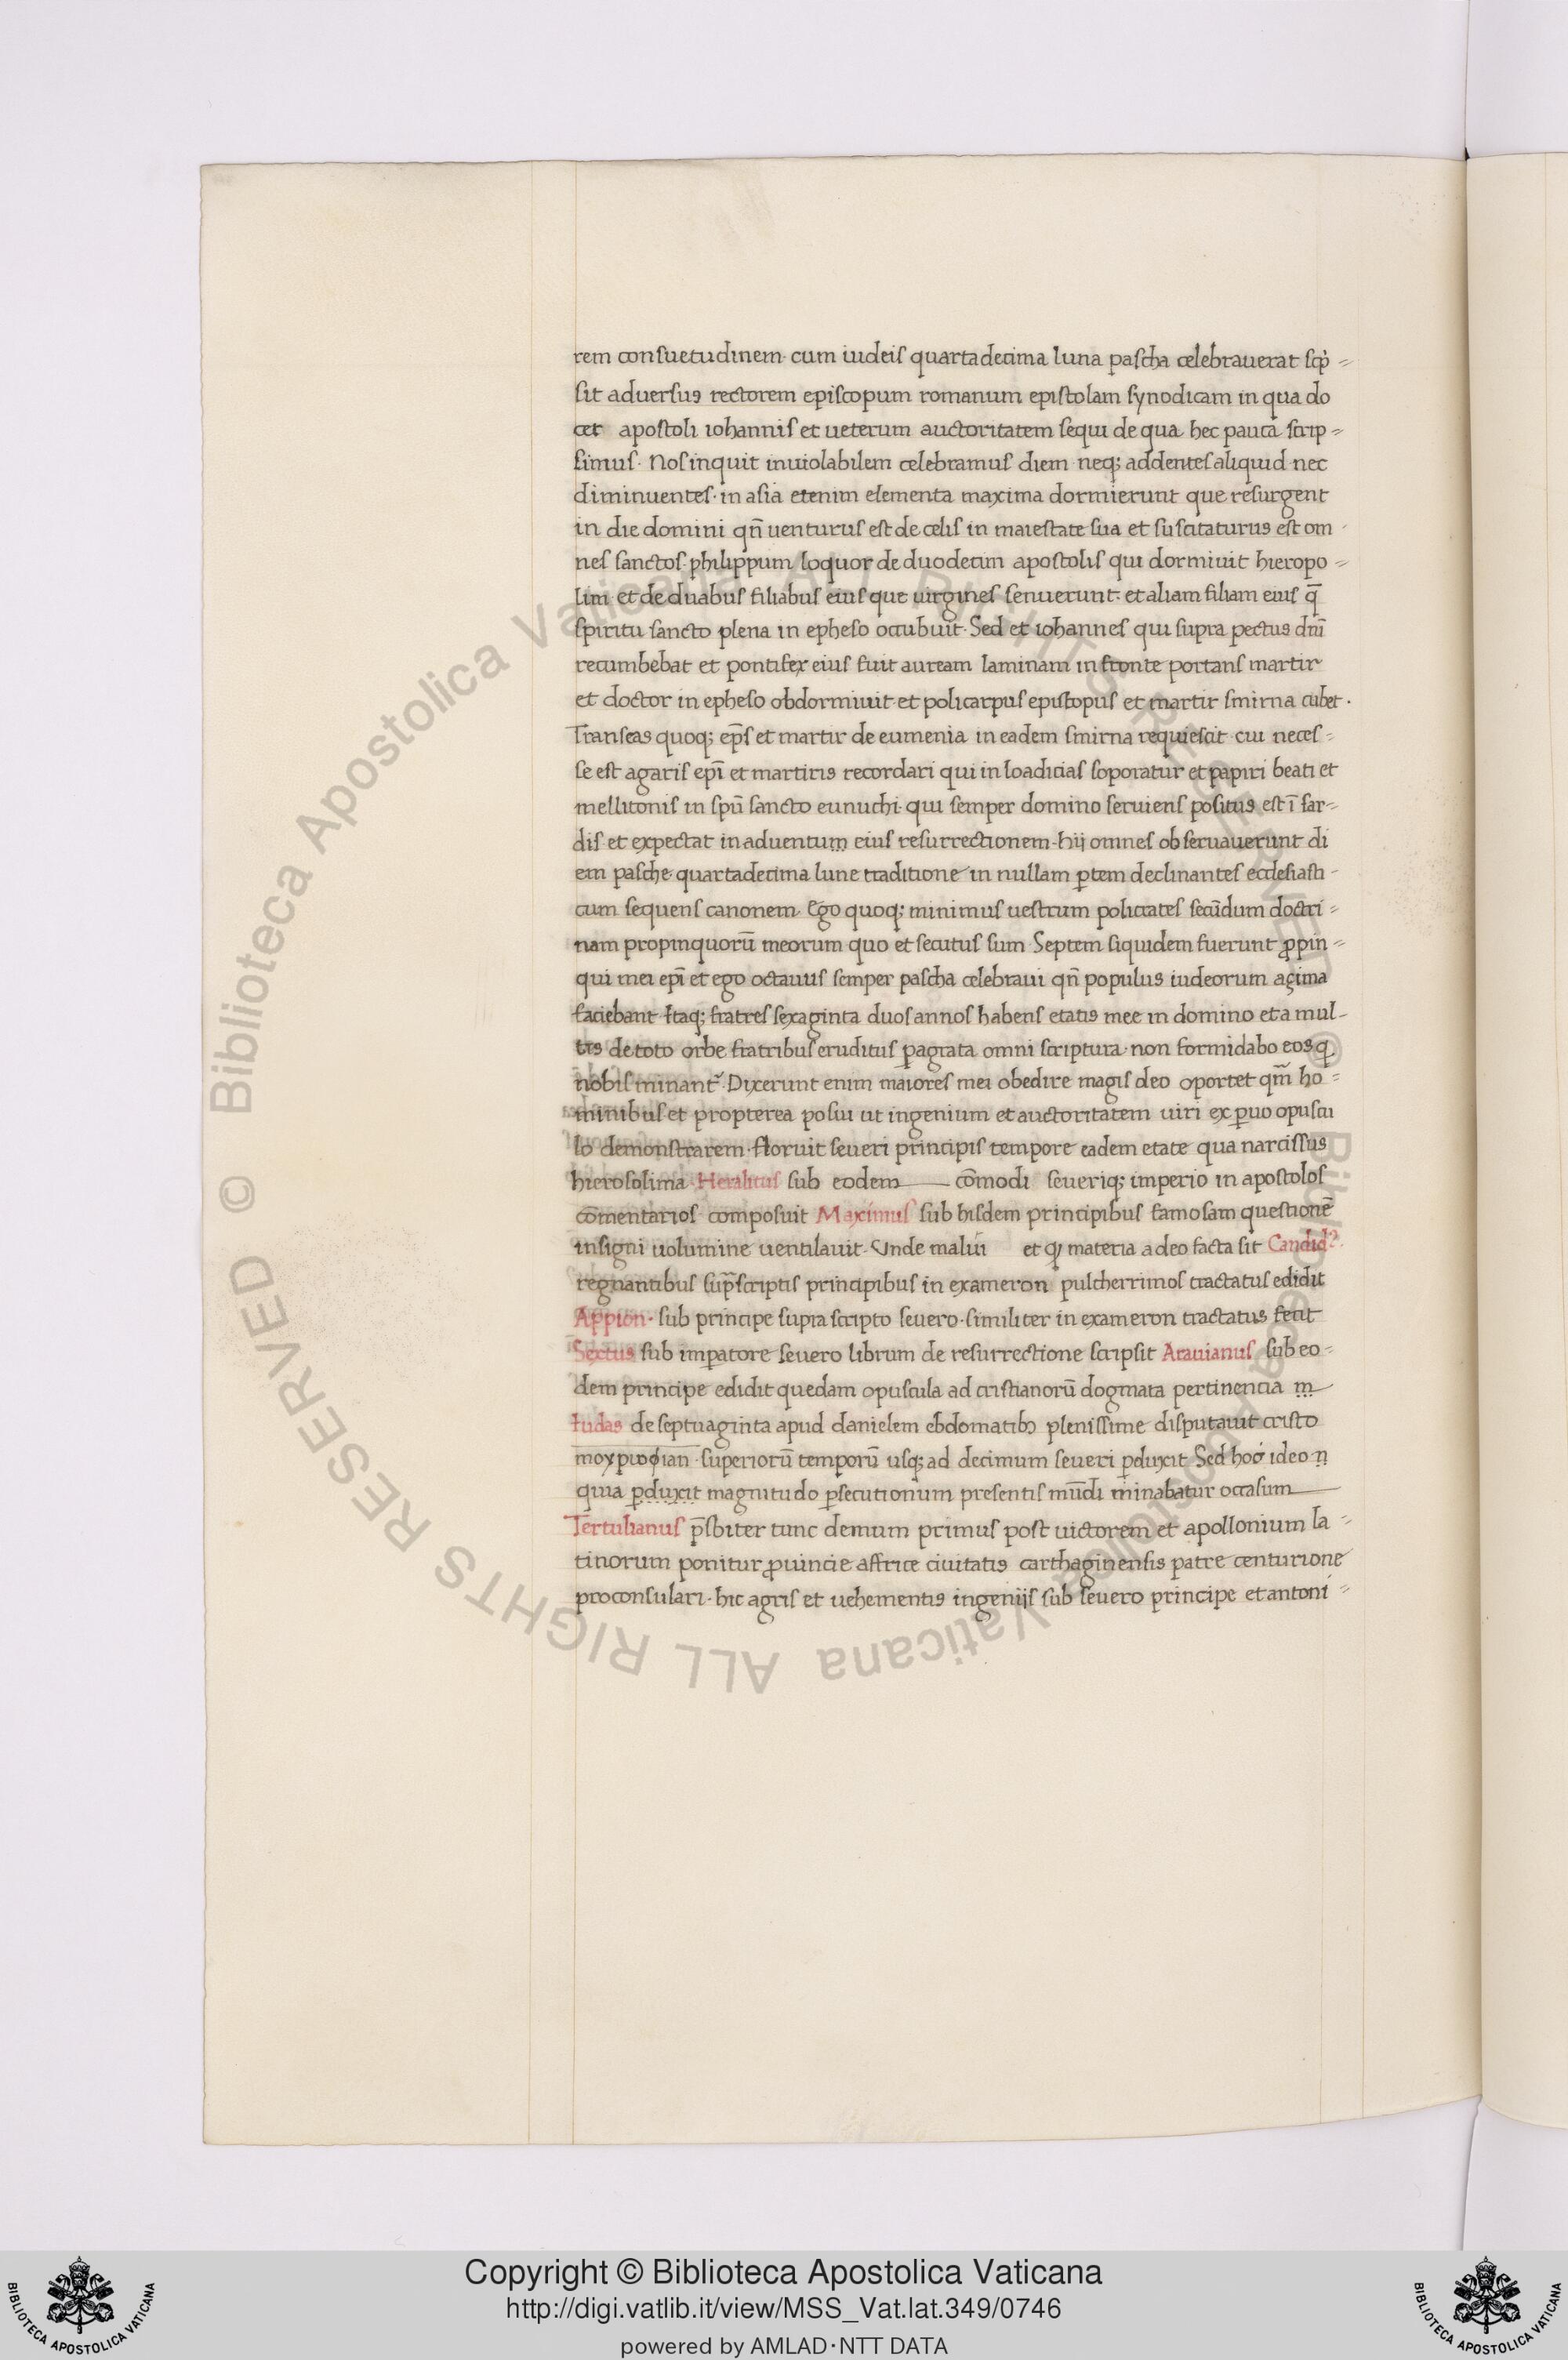 rem consuetudinem· cum iudeis quartadecima luna pascha celebrauerat sc̣p̄ -
sit aduersus rectorem episcopum romanum epistolam synodicam in qua do
cet apostoli iohannis et ueterum auctoritatem sequi de qua hec pauca scrip -
simus· Nos inquit inuiolabilem celebramus diem neq; addentes aliquid nec
diminuentes· in asia etenim elementa maxima dormierunt que resurgent
in die domini qn̄ uenturus est de celis in maiestate sua et suscitaturus est om -
nes sanctos· philippum loquor de duodecim apostolis qui dormiuit hieropo -
lim et de duabus filiabus eius que uirgines senuerunt· et aliam filiam eius q̄
spiritu sancto plena in epheso occubuit· Sed et iohannes qui supra pectus dn̄i
recumbebat et pontifex eius fuit auream laminam in fronte portans martir
et doctor in epheso obdormiuit· et policarpus episcopus et martir smirna cubet·
Transeas quoq; ep̄s et martir de eumenia in eadem smirna requiescit cui neces -
se est agaris ep̄i et martiris recordari qui in loadicias soporatur et papiri beati et
mellitonis in sp̄u sancto eunuchi· qui semper domino seruiens positus est ī sar -
dis et expectat in aduentum eius resurrectionem· hij omnes obseruauerunt di
em pasche quartadecima lune traditione in nullam ꝑtem declinantes ecclesiasti -
cum sequens canonem· Ego quoq; minimus uestrum policrates secūdum doctri -
nam propinquorū meorum quo et secutus sum Septem siquidem fuerunt ꝓpin -
qui mei ep̄i et ego octauus semper pascha celebraui qn̄ populus iudeorum açima
faciebant Itaq; fratres sexaginta duos annos habens etatis mee in domino et a mul -
tis de toto orbe fratribus eruditus ꝑagrata omni scriptura· non formidabo eos q
nobis minant᷑· Dixerunt enim maiores mei obedire magis deo oportet qm̄ ho -
minibus et propterea posui ut ingenium et auctoritatem uiri ex ꝑuo opuscu
lo demonstrarem· floruit seueri principis tempore eadem etate qua narcissus
hierosolima· Heralitus sub eodem cōmodi seueriq; imperio in apostolos
cōmentarios composuit Maximus sub hisdem principibus famosam questionē
insigni uolumine uentilauit· Vnde malui et qꝫ materia a deo facta sit Candidꝰ·
regnantibus sup̄scriptis principibus in exameron pulcherrimos tractatus edidit
Appion· sub principe supra scripto seuero· similiter in exameron tractatus fecit
Sextus sub imꝑatore seuero librum de resurrectione scripsit Arauianus sub eo -
dem principe edidit quedam opuscula ad cristianorū dogmata pertinencia
Iudas de septuaginta apud danielem ebdomatibꝫ plenissime disputauit cristo
moyρωφian· superiorū temporū usq; ad decimum seueri ꝑduxit Sed hoc ideo n
quia ꝑduxit magnitudo ꝑsecutionum presentis mūdi minabatur occasum
Tertulianus p̄sbiter tunc demum primus post uictorem et apollonium la -
tinorum ponitur ꝓuincie affrice ciuitatis carthaginensis patre centurione
proconsulari· hic agris et uehementis ingenijs sub seuero principe et antoni -
Copyright © Biblioteca Apostolica Vaticana
http://digi.vatlib.it/view/MSS_Vat.lat.349/0746
powered by AMLAD·NTT DATA
© Biblioteca Apostolica Vaticana ALL RIGHTS RESERVED
© Biblioteca Apostolica Vaticana ALL RIGHTS RESERVED
BIBLIOTECA APOSTOLICA VATICANA
BIBLIOTECA APOSTOLICA VATICANA